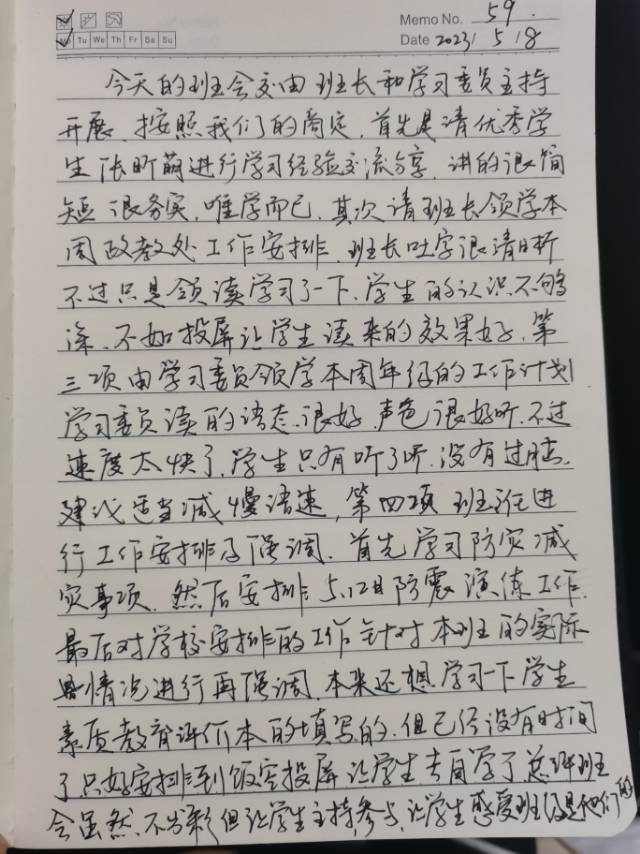 Memo No. 59.
Mo Tu We Th Fr Sa Su
Date 2023/5/8
今天的班会交由班长和学习委员主持
开展，按照我们的商定，首先是请优秀学
生张昕萌进行学习经验交流分享，讲的很简
短，很务实，唯学而已，其次请班长领学本
周政教处工作安排，班长吐字很清晰
不过只是领读学习了一下，学生的认识不够
深，不如投屏让学生读来的效果好，第
三项由学习委员领学本周年级的工作计划
学习委员读的语态很好，声色很好听，不过
速度太快了，学生只有听了听，没有过脑，
建议适当减慢语速，第四项班主任进
行工作安排及强调，首先学习防灾减
灾事项，然后安排5.12日防震演练工作，
最后对学校安排的工作针对本班的实际
情况进行再强调，本来还想学习一下学生
素质教育评价本的填写的，但已经没有时间
了只好安排到饭空投屏让学生去自学了总评班
会虽然不出彩但让学生主持，参与，让学生感受班级是他们的